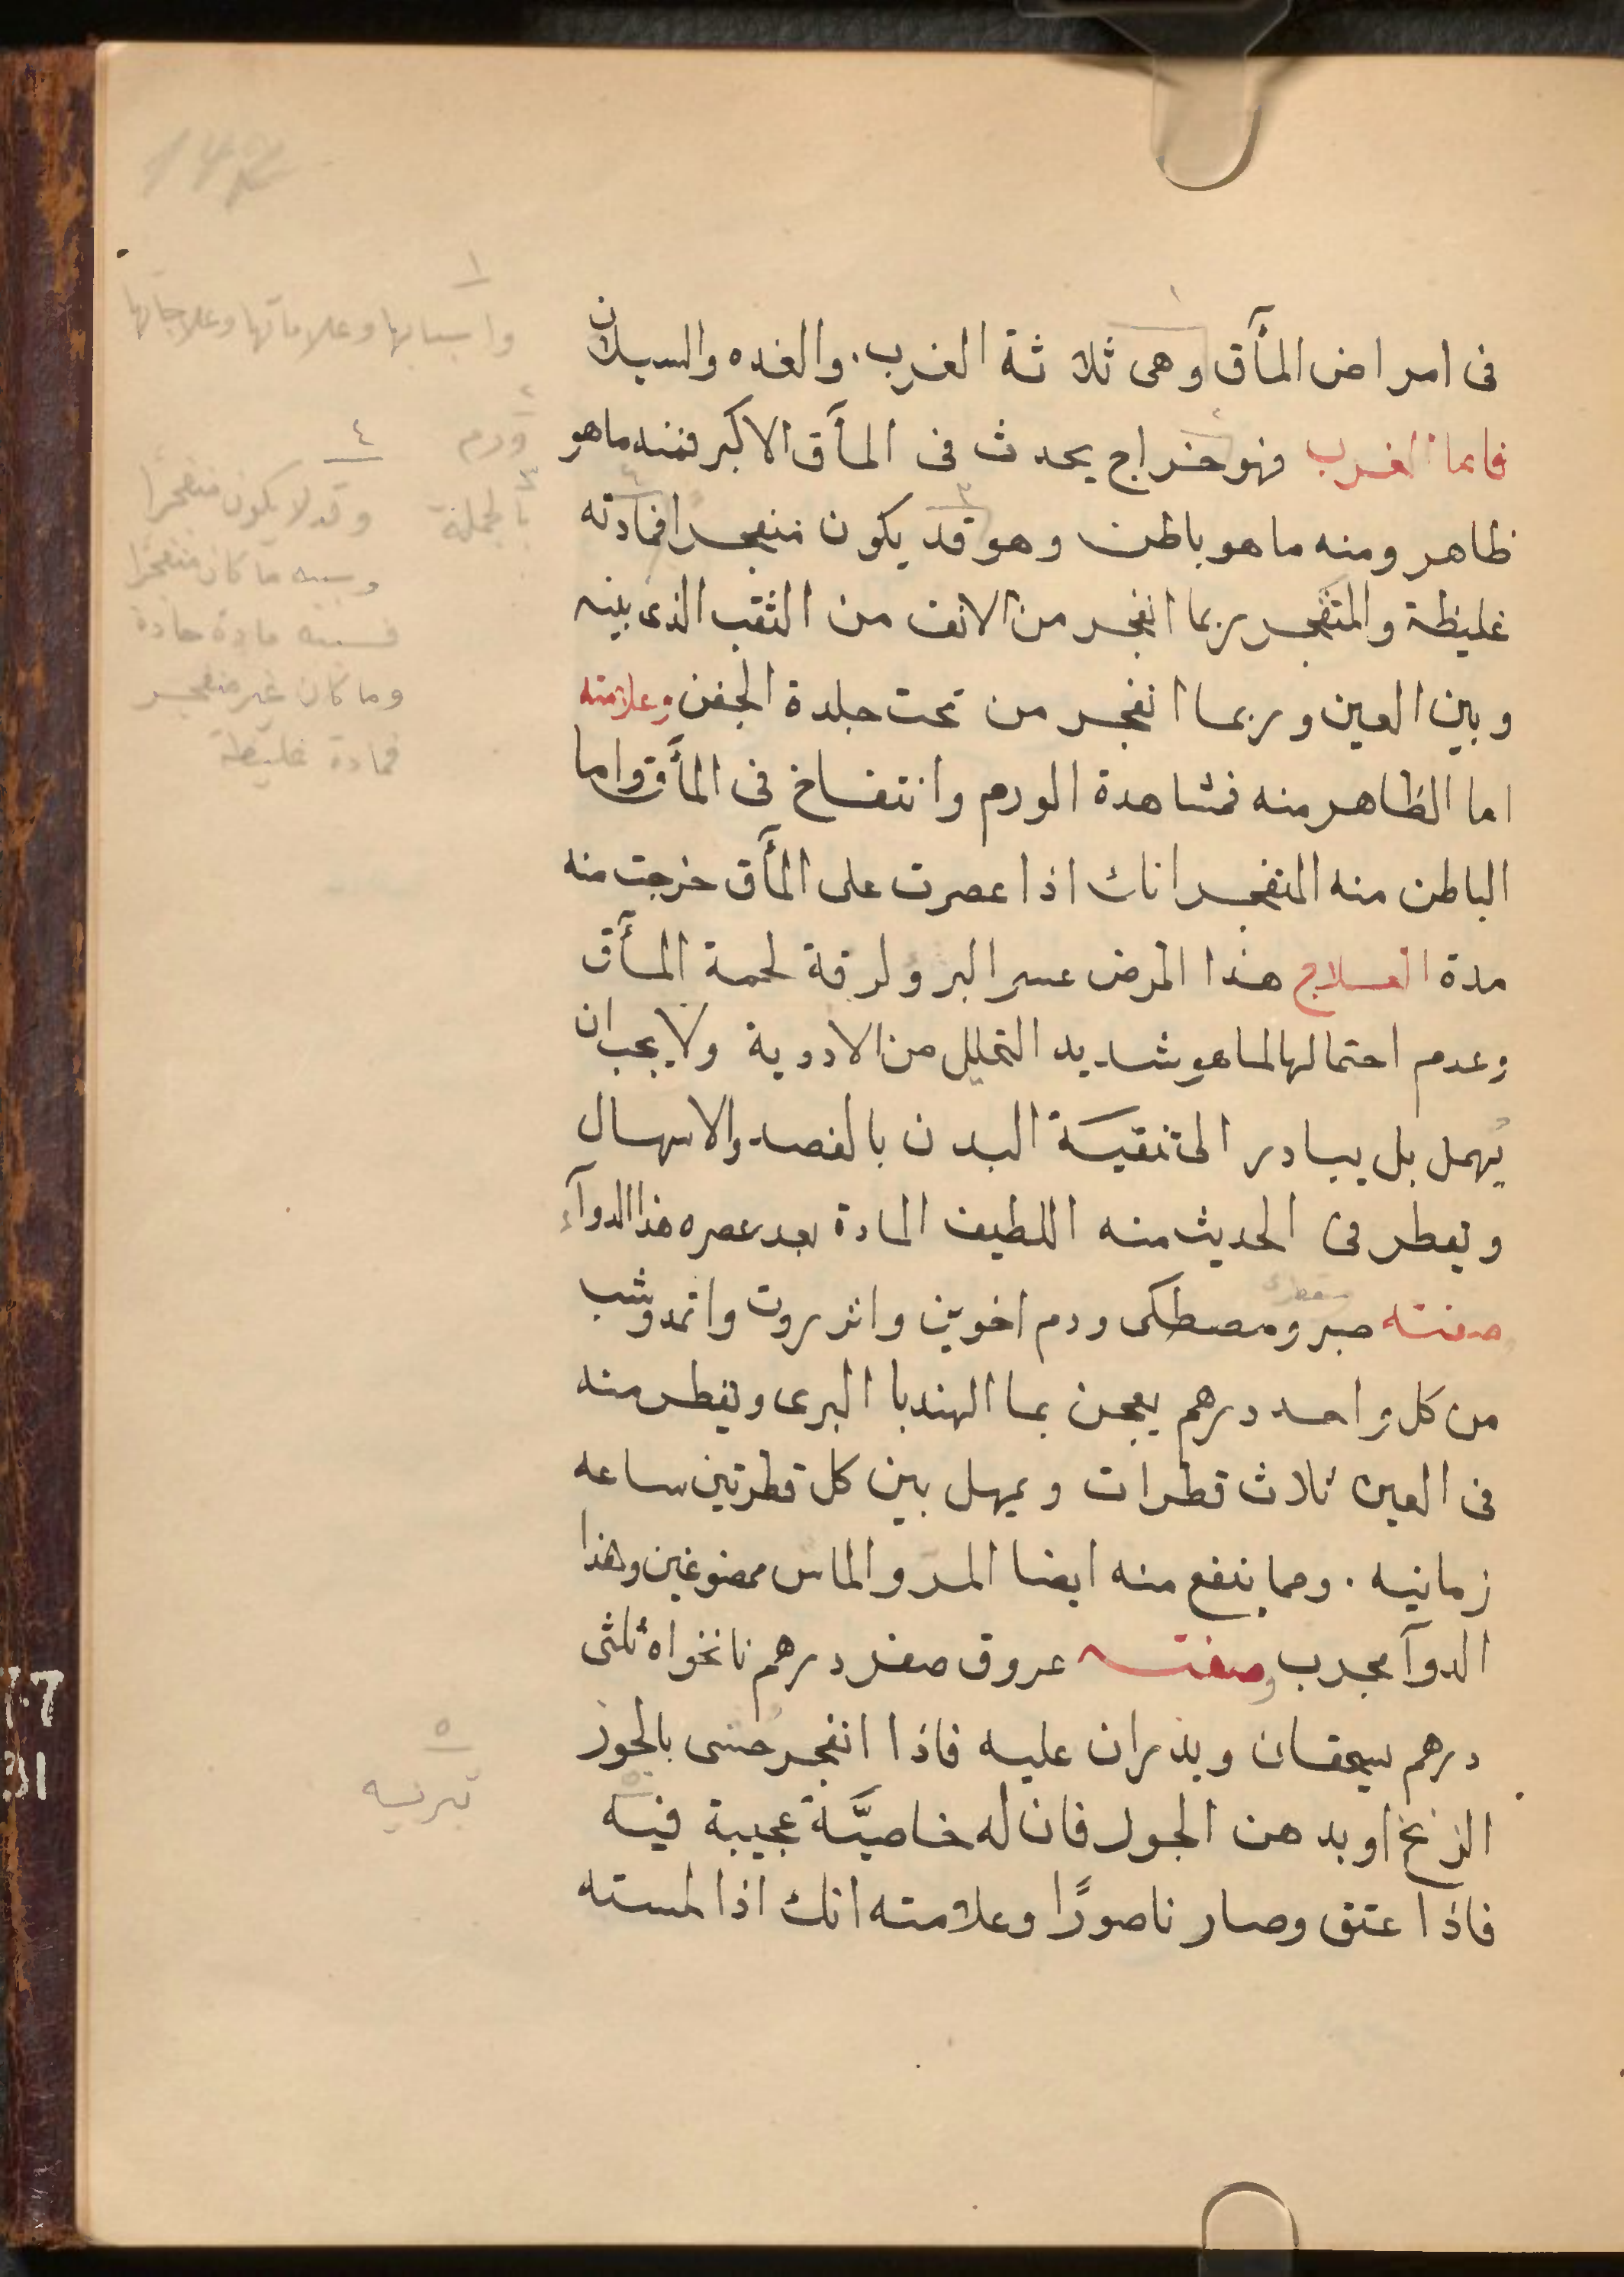 فى امراض المآق وهى ثلاثة الغرب. والغده والسيلان
فاما الغرب فهو خراج يحدث فى المآق الاكبر فمنه ماهو
ظاهر ومنه ما هو باطن وهو قد يكون منفجرا فمادته
غليظة والمنفجر ربما انفجر من الانف من الثقب الذى بينه
وبين العين وربما انفجر من تحت جلدة الجفن وعلامته
اما الظاهر منه فمشاهدة الورم وانتفاخ فى المآق واما
الباطن منه المنفجر انك اذا عصرت على المآق خرجت منه
مدة العلاج هذا المرض عسر البرؤ لرقة لحمة المآق
وعدم احتمالها لما هو شديد التحليل من الادوية ولا يجب ان
يُهمل بل يبادر الى تنقية البدن بالفصد والاسهال
ويقطر فى الحديث منه اللطيف المادة بعد عصره هذا الدوآء
صفته صبر ومصطكى ودم اخوين وانزروت واثمد وشب
من كل واحد درهم يعجن بما الهندبا البرى ويقطر منه
فى العين ثلاث قطرات ويمهل بين كل قطرتين ساعه
زمانيه . ومما ينفع منه ايضا المر والماش ممضوغين وهذا
الدوآ مجرب وصفته عروق صفر درهم نانخواه ثلثى
درهم يسحقان ويذران عليه فاذا انفجر حشى بالجوز
الزنخ او بدهن الجول فان له خاصيَّة عجيبة فيه
فاذا عتق وصار ناصورًا وعلامته انك اذا لمسته
١
واسبابها وعلاماتها وعلاجاتها
٢
ورم
٣
بالجملة
٤
وقد لا يكون منفجرًا
وسببه ما كان منفجرًا
فسببه مادة حادة
وما كان غير منفجر
فمادة غليظة
٥
7.7
31